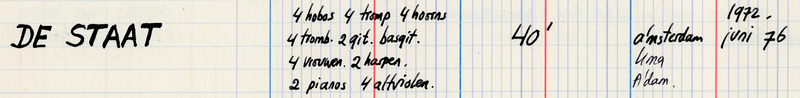 DE STAAT
4 hobos 4 tromp 4 hoorns
4 tromb. 2 git. basgit.
4 vrouwen. 2 harpen.
2 pianos 4 altviolen.
40'
1972.
a'msterdam juni 76
A'dam.